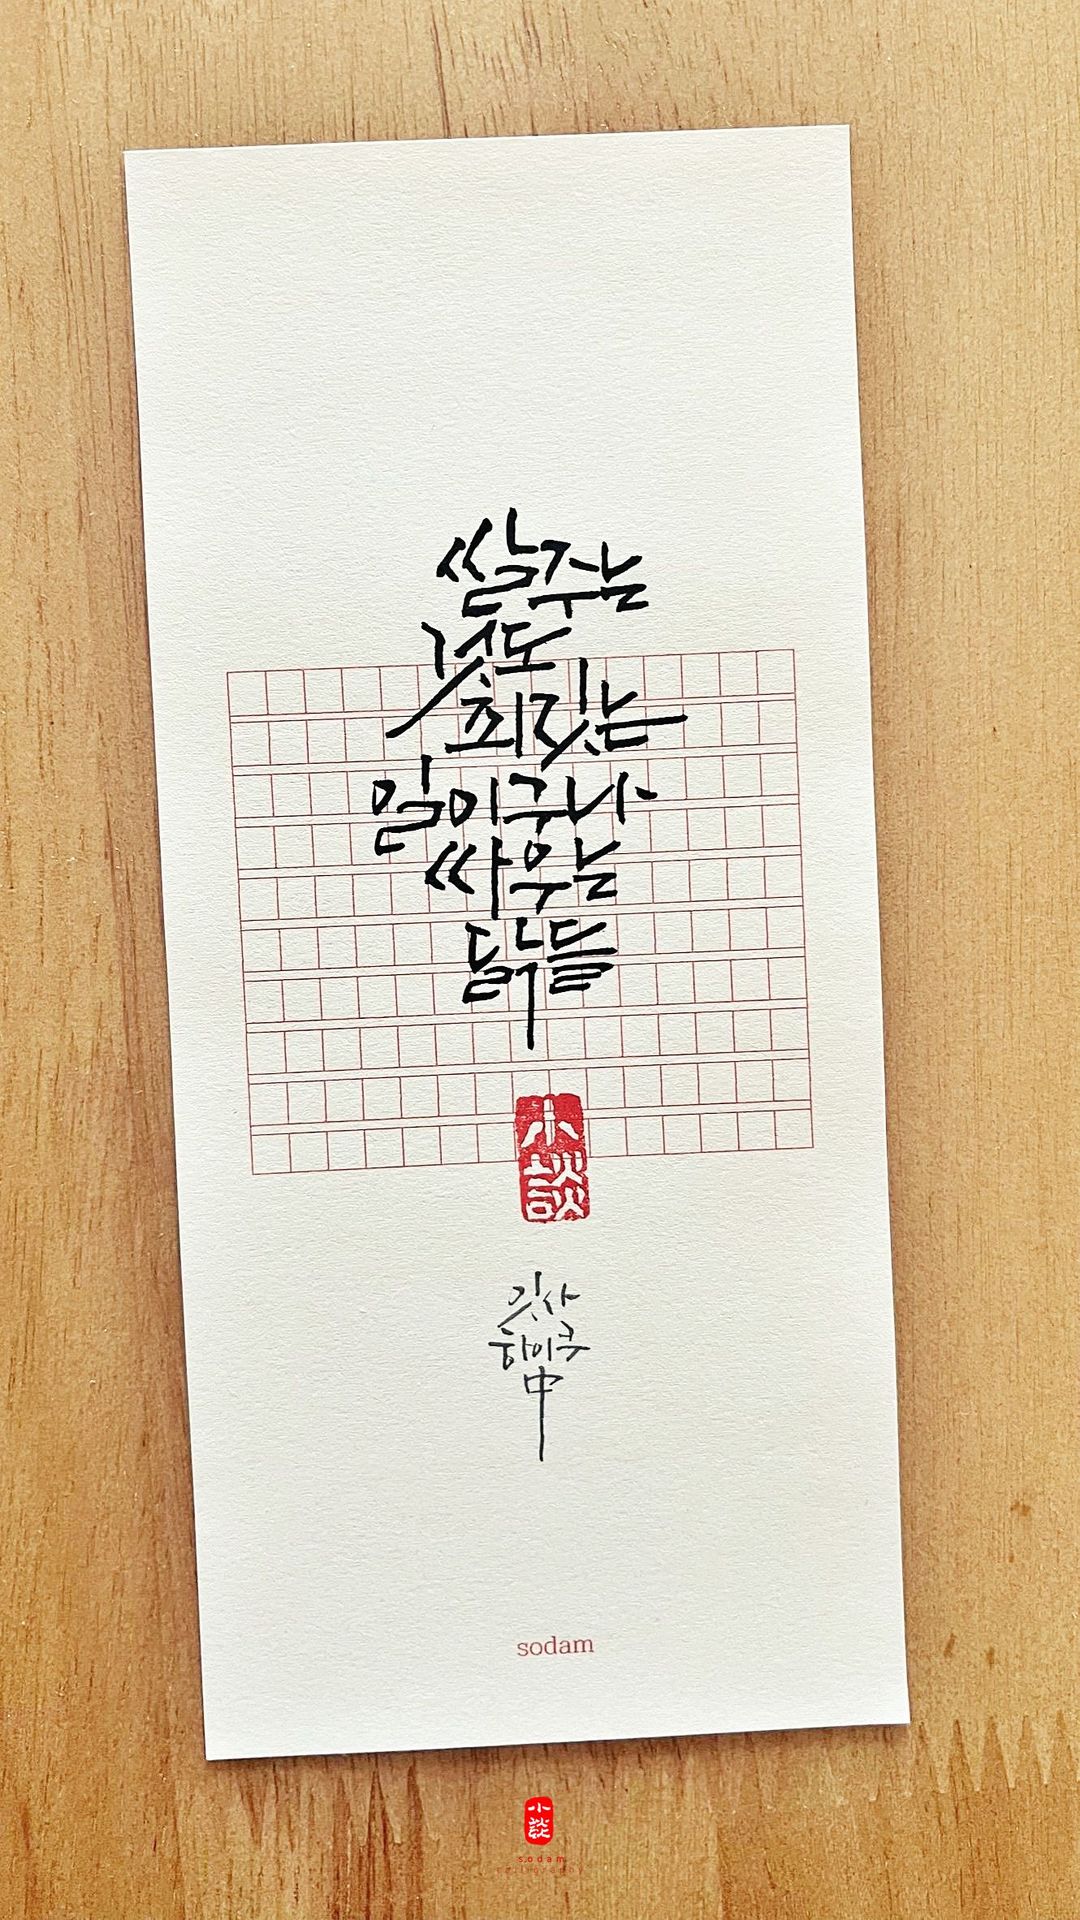 쌀주는
것도
죄짓는
일이구나
싸우는
닭들
小談
잇사
하이쿠
中
sodam
小談
sodam
calligraphy